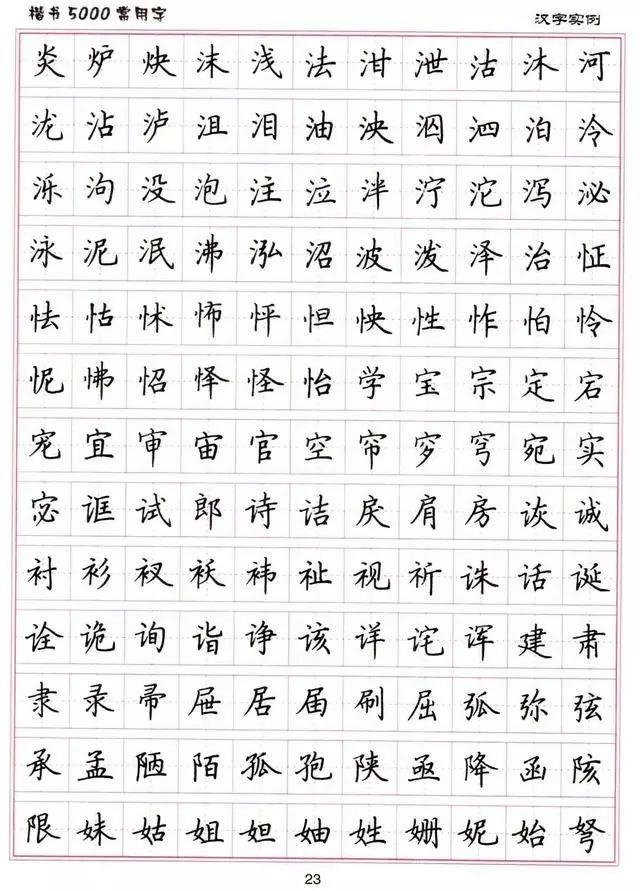 楷书5000常用字
汉字实例
炎炉炔沫浅法泔泄沽沐河
泷沾泸沮泪油泱泅泗泊泠
泺泃没泡注泣泮泞沱泻泌
泳泥泯沸泓沼波泼泽治怔
怯怙怵怖怦怛怏性怍怕怜
怩怫怊怿怪怡学宝宗定宕
宠宜审宙官空帘穸穹宛实
宓诓试郎诗诘戾肩房诙诚
衬衫衩祆祎祉视祈诛话诞
诠诡询诣诤该详诧诨建肃
隶录帚屉居届刷屈弧弥弦
承孟陋陌孤孢陕亟降函陔
限妹姑姐妲妯姓姗妮始弩
23